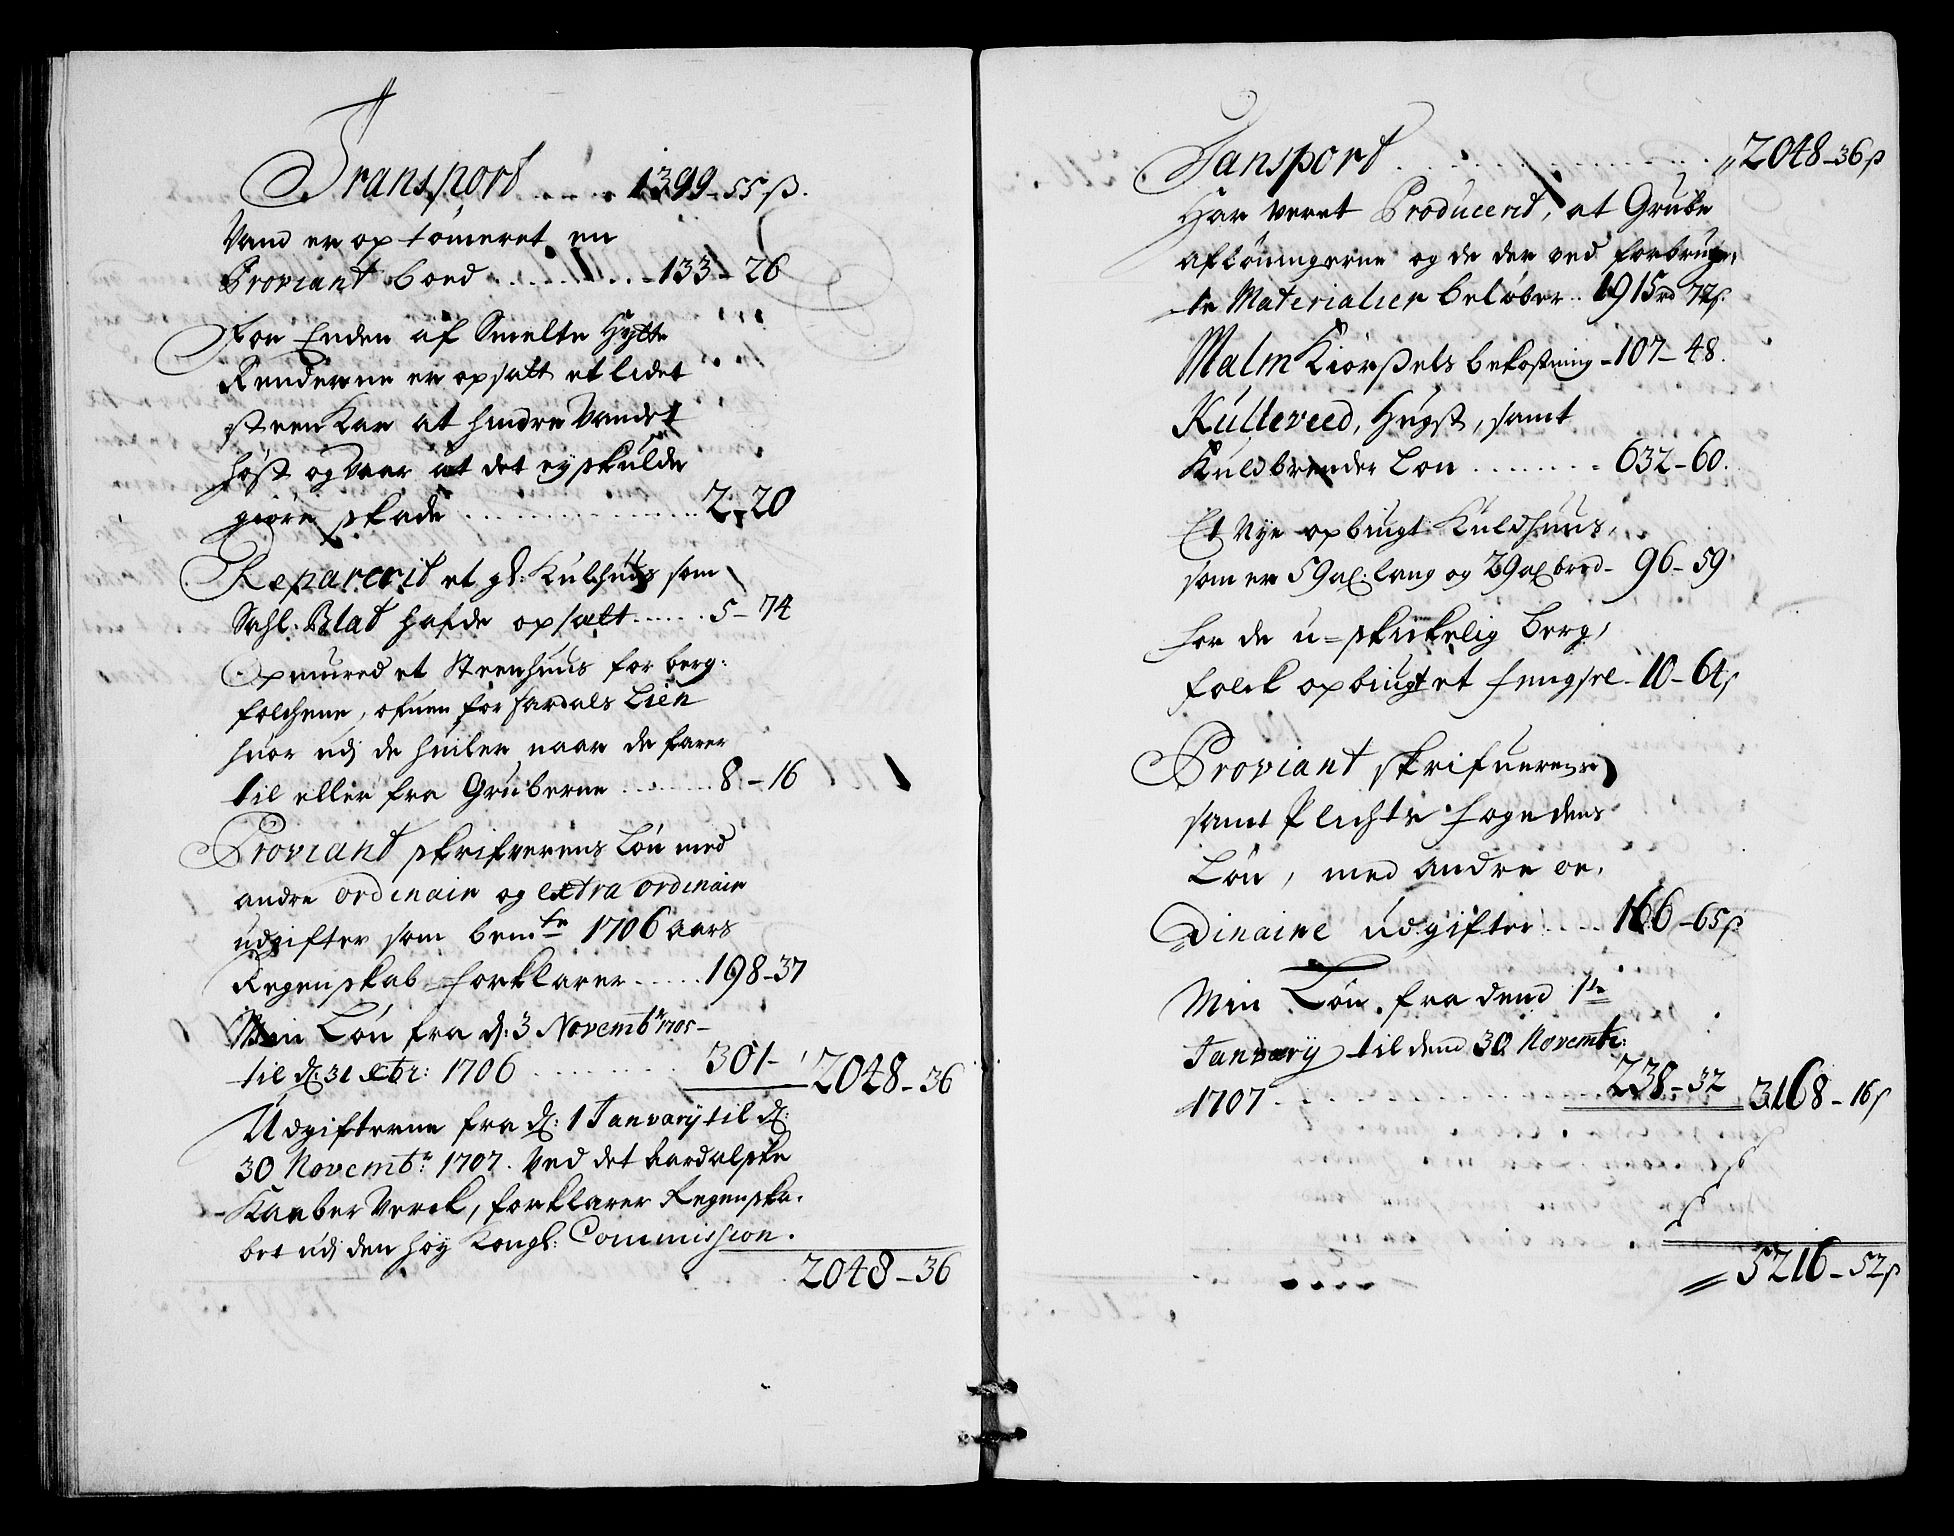 Transport . . . . . 1399 - 55 ß.
Vand er op tømeret en
Proviant boed . . . . . . . 133 - 26
For Enden af Smelte Hytte
Renderne er opsatt et lidet
steen Kar at hindre Vandet
høst og vaar at det ey skulde
giøre skade . . . . . . . . . . 2 - 20
Reparerit et gl: Kulhuus som
Sahl: Blat hafde opsatt . . . . . 5 - 74
Opmured et Steenhuus for berg:
folchene, ofuen for Lien
huor udj de huiler naar de farer
til eller fra Gruberne . . . . . . 8 - 16
Proviant skrifverens Løn med
andre ordinair og extra ordinair
udgifter som bem.te 1706 aars
Regenskab forklarer . . . . . 198 - 37
Min Løn fra d: 3 Novembr 1705 -
til d: 31 xbr: 1706 . . . . . . . 301 - 2048 - 36
Udgifterne fra d: 1 Janvarij til d:
30 Novembr: 1707. Ved det
Kaaber Verck, forklarer Regenska-
bet udj den høy Kongl: Commission.
2048 - 36
Tansport . . . . . . . . . . . . 2048 - 36 ß
Har veret Producerit, at Grube
afløningerne og de der ved forbrug-
te Materialier beløber . . 1915 rd 72 ß.
Malm Kiørßels bekostning - 107 - 48.
Kulleveed, Hugst, samt
Kuldbrender Løn . . . . . . . . 632 - 60.
Et Nye opbiugt Kuldhuus,
som er 59 al: lang og 29 al bred - 96 - 59
for de u-skickelig Berg,
folck opbiugt et fengsel - 10 - 64 ß
Proviant skrifuerens
samt Plichts fogedens
Løn, med andre or,
dinaire udgifter . . . . 166 - 65 ß
Min Løn, fra dend 1te
Janvarij til dend 30 Novembr:
1707 . . . . . . . . . . . . . 238 - 32 3168 - 16 ß
5216 - 52 ß